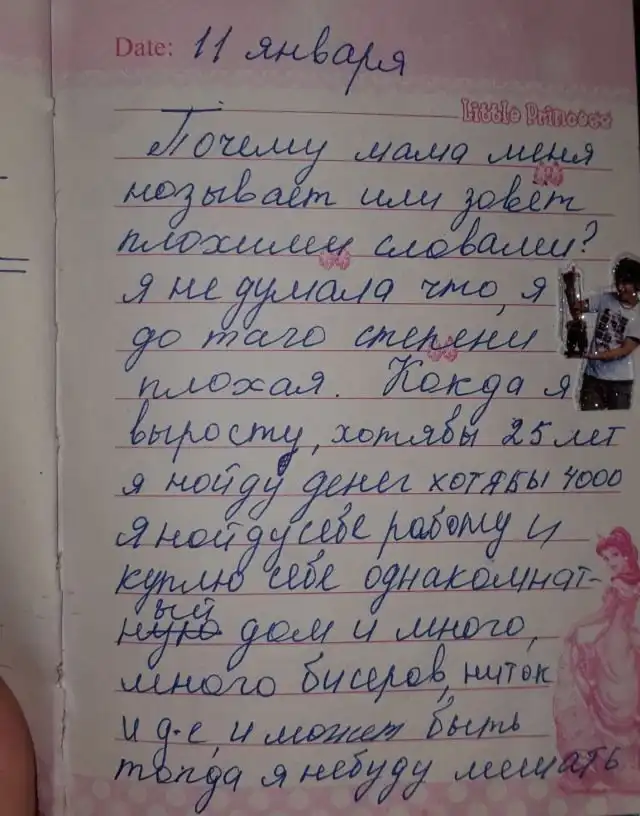 Date: 11 января
Little Princess
Почему мама меня
нозывает или зовёт
плохими словами?
я не думала что, я
до таго степени
плохая. Кокда я
выросту, хотябы 25 лет
я нойду денег хотябы 4000
я нойду себе работу и
куплю себе однакомнат-
ный дом и много,
много бисеров, ниток
и д.е, и может быть
тогда я небуду мешать